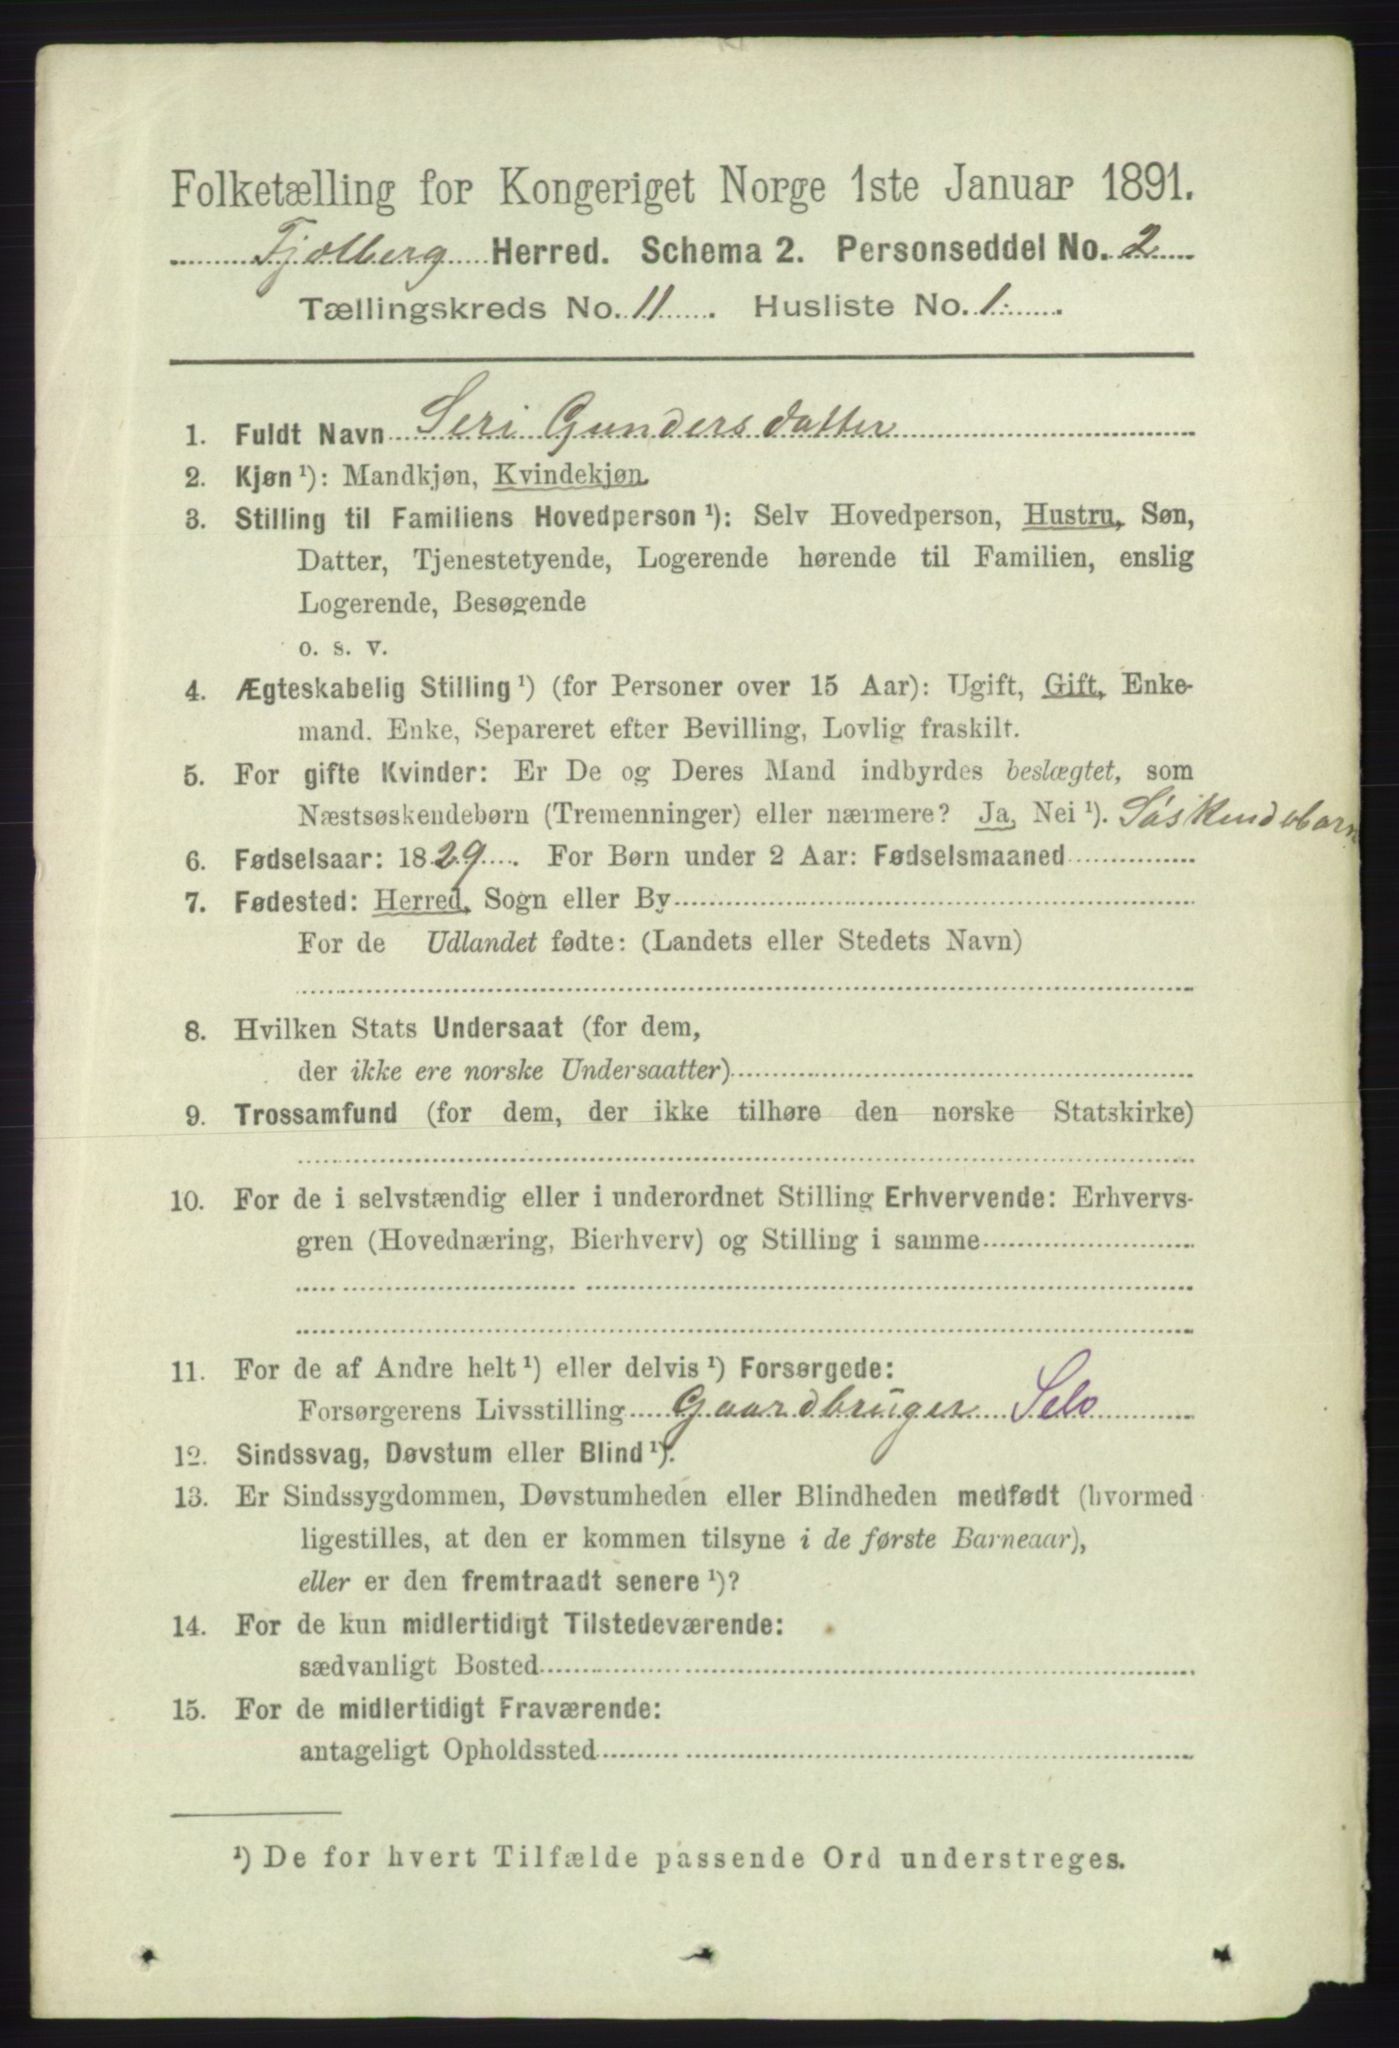 Folketælling for Kongeriget Norge 1ste Januar 1891.
Fjelberg Herred. Schema 2. Personseddel No. 2
Tællingskreds No. 11 . Husliste No. 1 .
1. Fuldt Navn Seri Gundersdatter
2. Kjøn ¹): Mandkjøn, Kvindekjøn.
3. Stilling til Familiens Hovedperson ¹): Selv Hovedperson, Hustru, Søn,
Datter, Tjenestetyende, Logerende hørende til Familien, enslig
Logerende, Besøgende
o. s. v.
4. Ægteskabelig Stilling ¹) (for Personer over 15 Aar): Ugift, Gift, Enke-
mand. Enke, Separeret efter Bevilling, Lovlig fraskilt.
5. For gifte Kvinder: Er De og Deres Mand indbyrdes beslægtet, som
Næstsøskendebørn (Tremenninger) eller nærmere? Ja, Nei ¹). Søskendebarn
6. Fødselsaar: 1829 . For Børn under 2 Aar: Fødselsmaaned
7. Fødested: Herred, Sogn eller By
For de Udlandet fødte: (Landets eller Stedets Navn)
8. Hvilken Stats Undersaat (for dem,
der ikke ere norske Undersaatter)
9. Trossamfund (for dem, der ikke tilhøre den norske Statskirke)
10. For de i selvstændig eller i underordnet Stilling Erhvervende: Erhvervs-
gren (Hovednæring, Bierhverv) og Stilling i samme
11. For de af Andre helt ¹) eller delvis ¹) Forsørgede:
Forsørgerens Livsstilling Gaardbruger Selo
12. Sindssvag, Døvstum eller Blind ¹).
13. Er Sindssygdommen, Døvstumheden eller Blindheden medfødt (hvormed
ligestilles, at den er kommen tilsyne i de første Barneaar),
eller er den fremtraadt senere ¹)?
14. For de kun midlertidigt Tilstedeværende:
sædvanligt Bosted
15. For de midlertidigt Fraværende:
antageligt Opholdssted
¹) De for hvert Tilfælde passende Ord understreges.